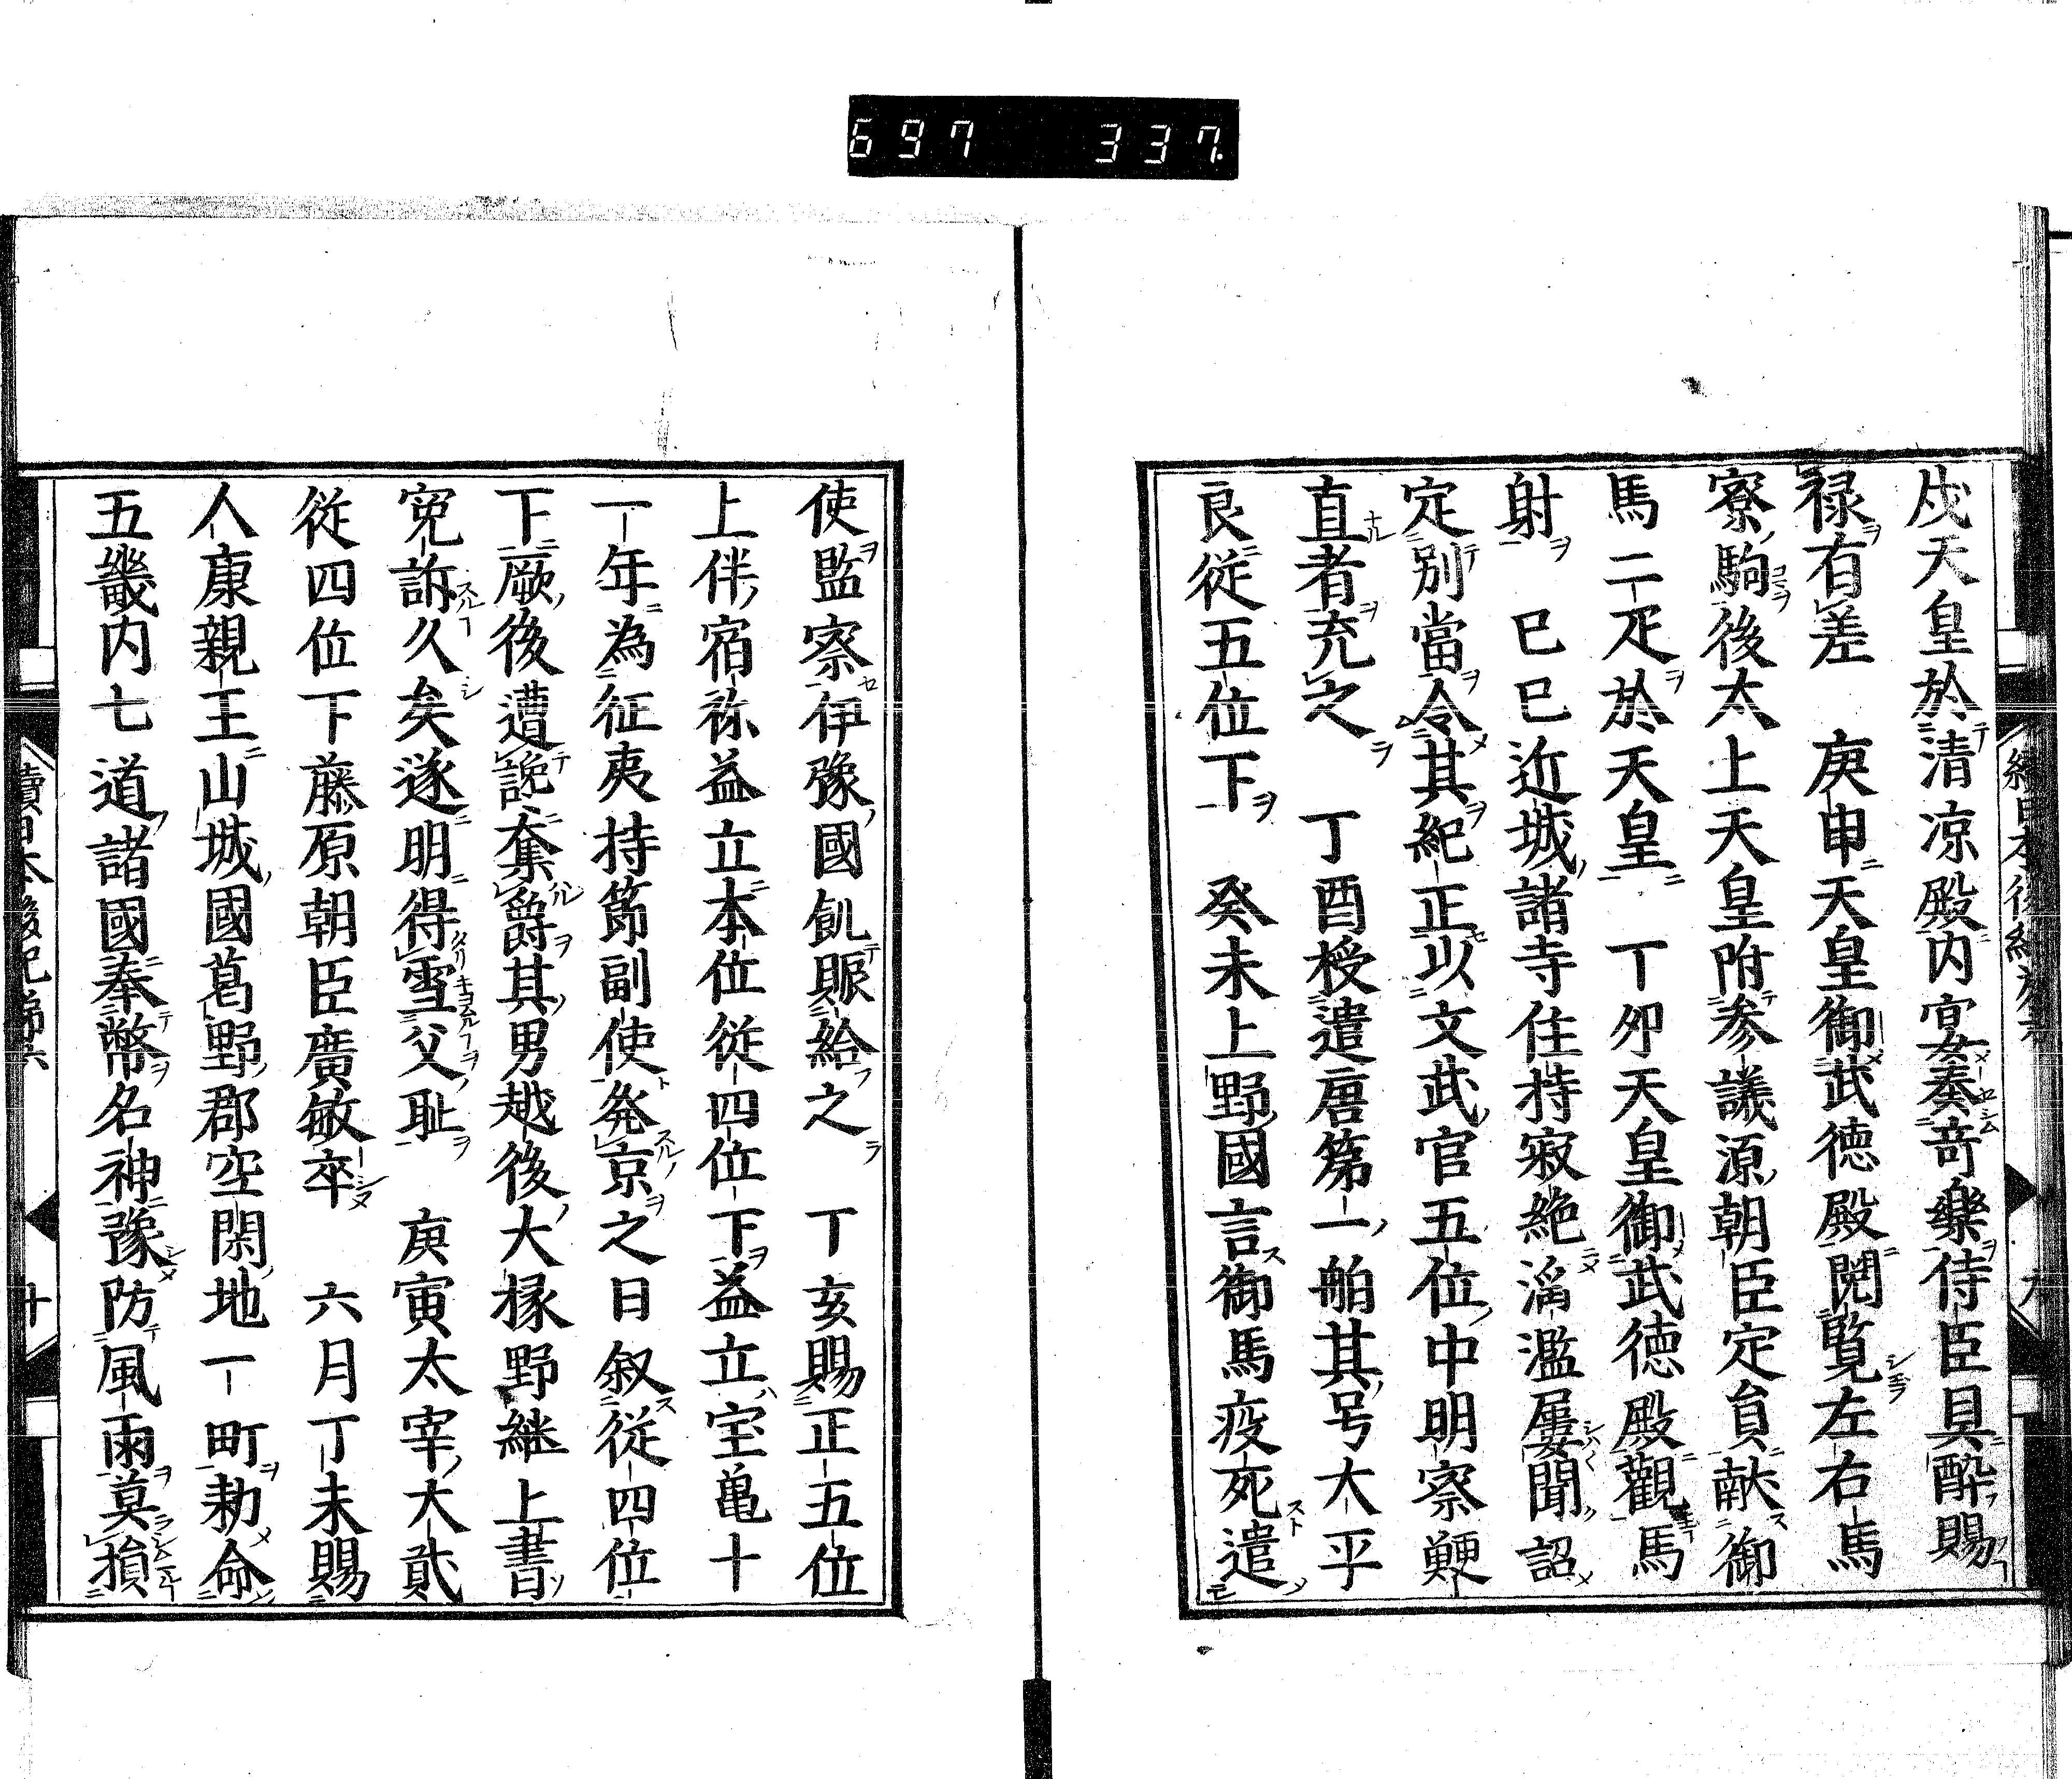 697 337.
戌天皇於清凉殿内宴奏音樂侍臣具醉賜
禄有差 庚申天皇御武徳殿閲覧左右馬
寮駒後太上天皇附参議源朝臣定貟献御
馬二疋於天皇 丁夘天皇御武徳殿觀馬
射 已巳近城諸寺住持寂絶滔濫屢聞詔
定别當令其紀正以文武官五位中明察鯁
直者充之 丁酉授遣唐第一舶其号大平
良従五位下 癸未上野國言御馬疫死遣
使監察伊豫國飢賑給之 丁亥賜正五位
上伴宿祢益立本位従四位下益立宝亀十
一年為征夷持節副使発京之日叙従四位
下厥後遭讒奪爵其男越後大掾野継上書
寃訴久矣遂明得雪父耻 庚寅太宰大貳
従四位下藤原朝臣廣敏卒 六月丁未賜
人康親王山城國葛野郡空閑地一町勅命
五畿内七道諸國奉幣名神豫防風雨莫損
續日本後紀第六 十